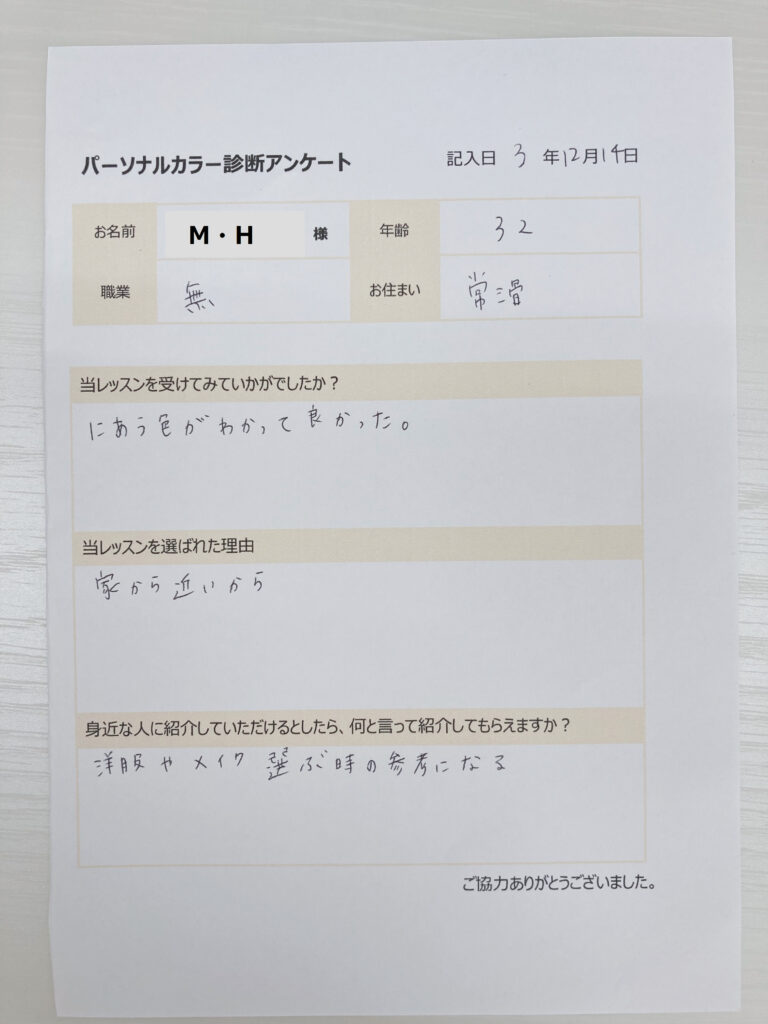 パーソナルカラー診断アンケート
記入日 3年12月14日
お名前 M・H 様 年齢 32
職業 無 お住まい 常滑
当レッスンを受けてみていかがでしたか？
にあう色がわかって良かった。
当レッスンを選ばれた理由
家から近いから
身近な人に紹介していただけるとしたら、何と言って紹介してもらえますか？
洋服やメイク選ぶ時の参考になる
ご協力ありがとうございました。